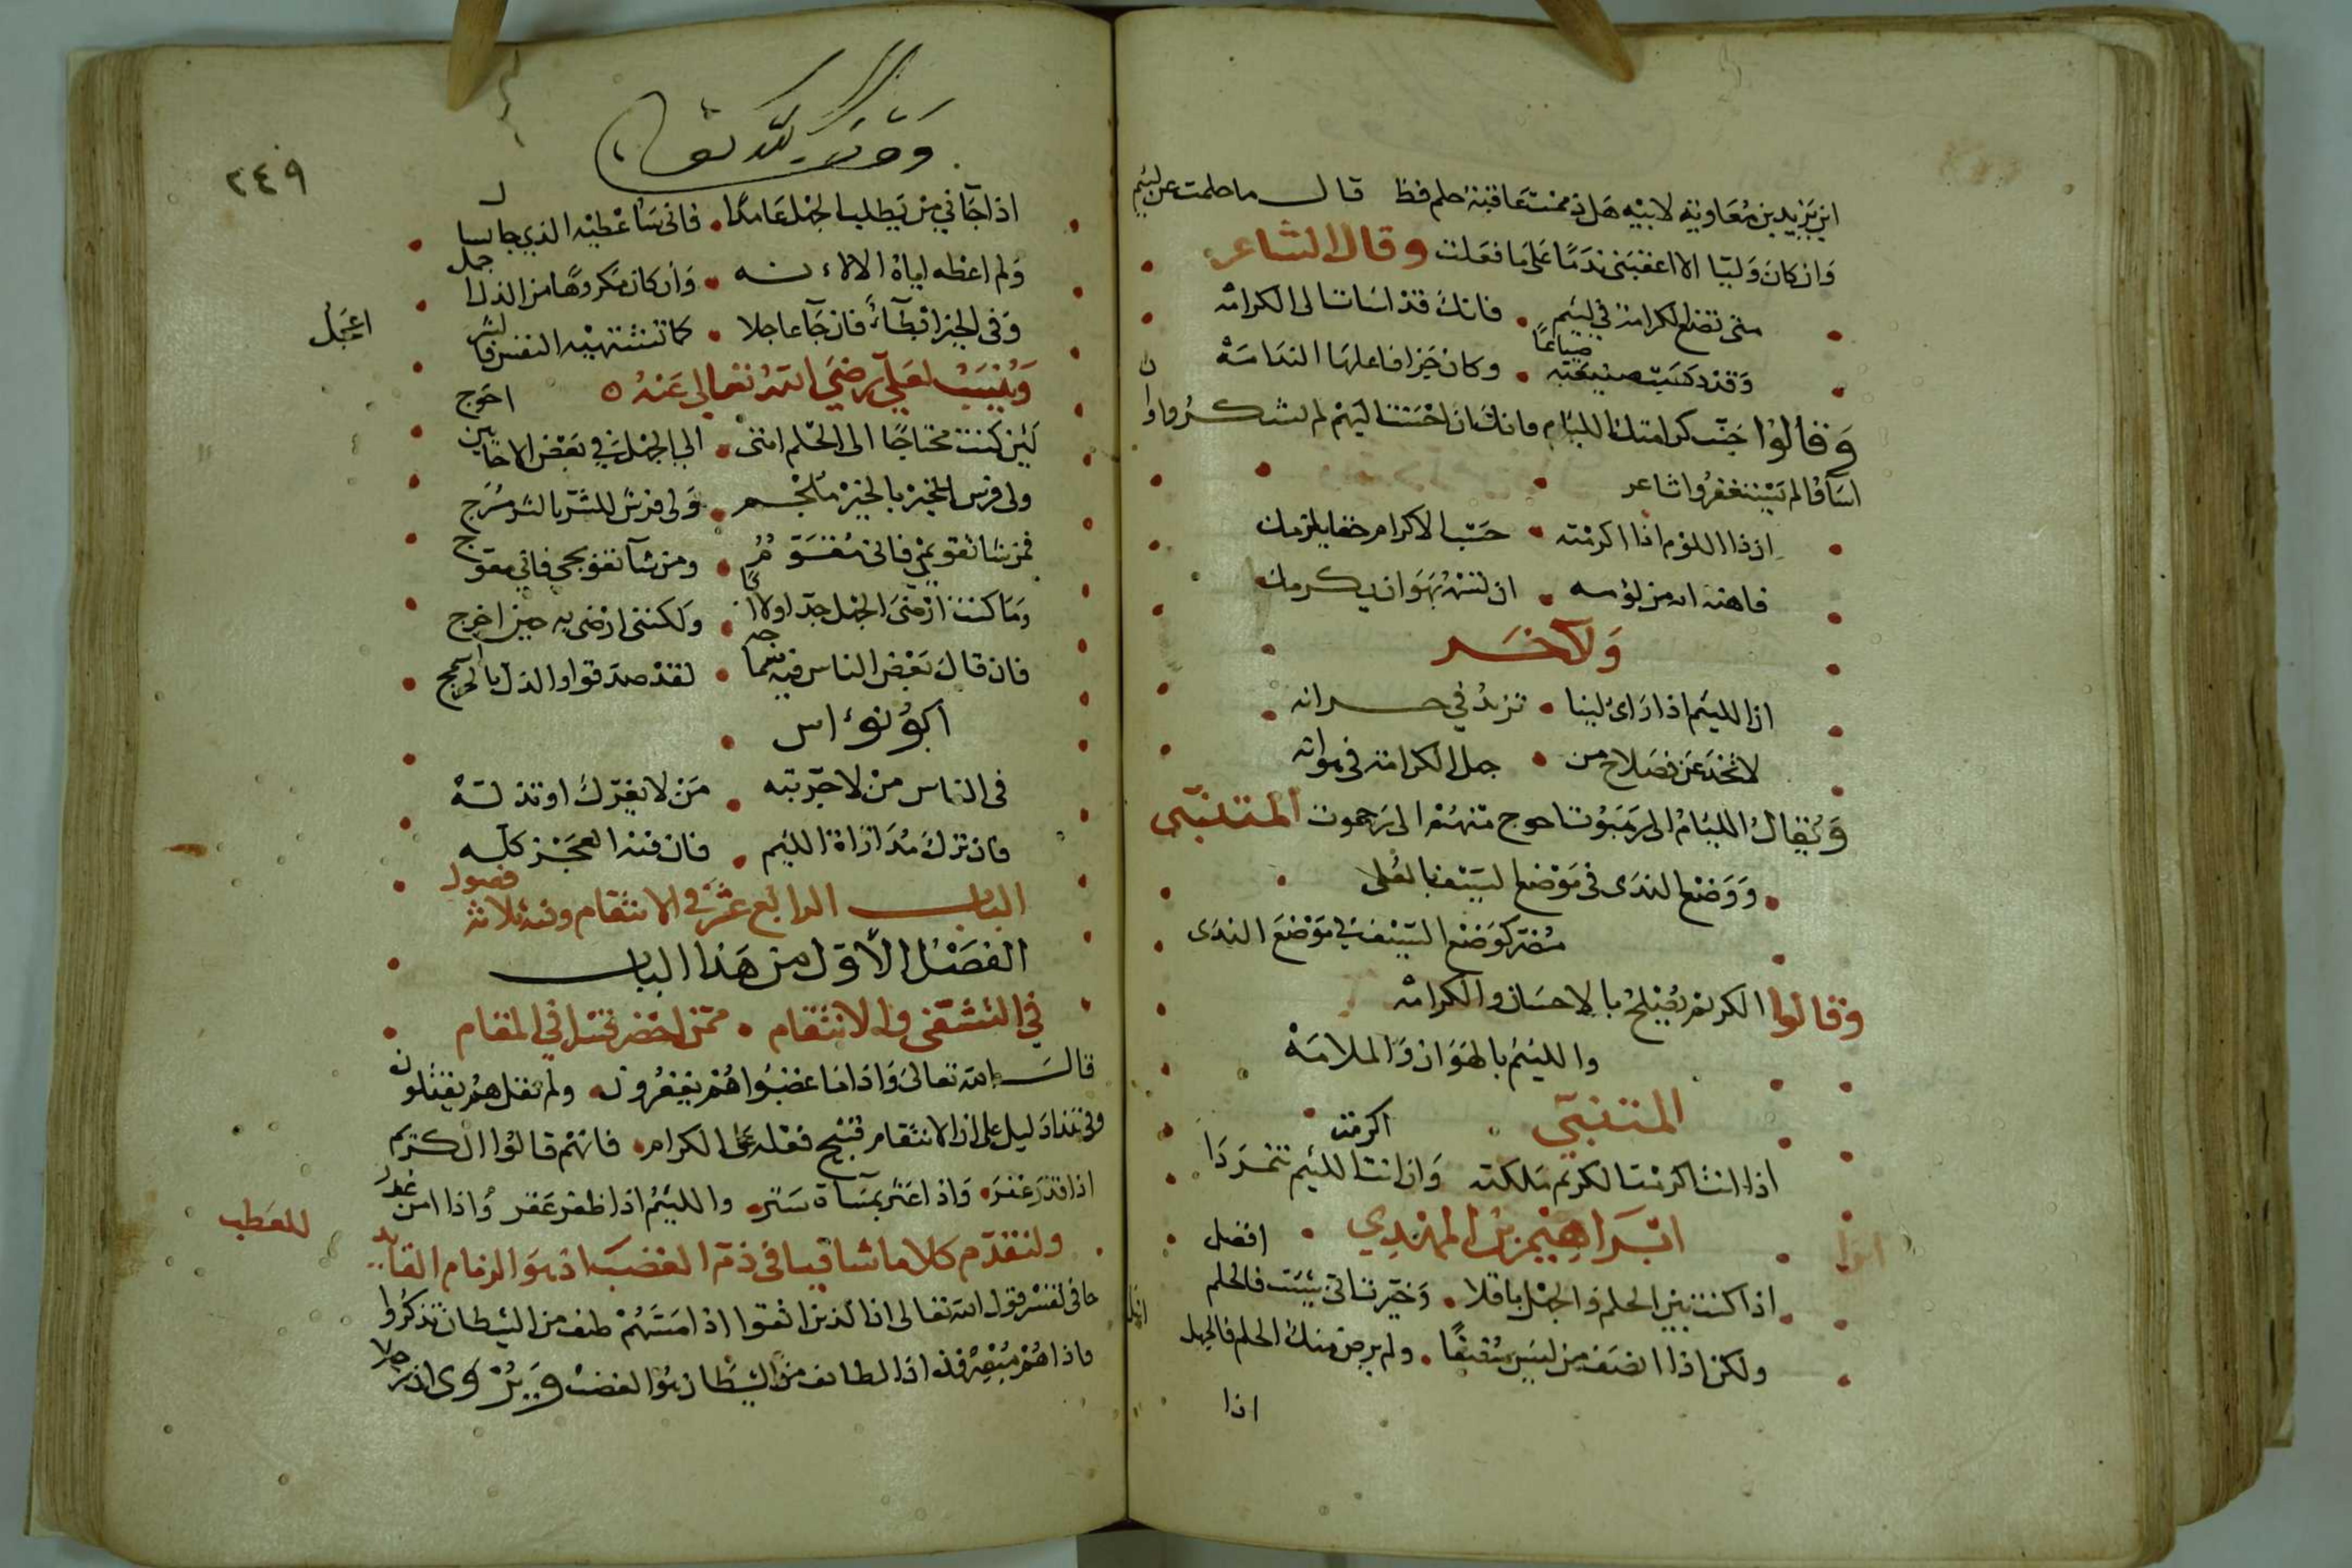 ابن يزيد بن معاوية لابيه هل ذممت عاقبة حلم قط قال ما حلمت عن لئيم
وان كان وليا الا اعقبنى ندما على ما فعلت وقال الشاعر
متى تضع الكرامة في لئيم فانك قد اسات الى الكرامه
وقد ذهبت صنيعته ضياعا وكان جزا فاعلها الندامة
وقالوا جنب كرامتك اللئام فانك ان احسنت اليهم لم يشكروا وان
اساؤا لم يستغفروا شاعر
ان ذا اللؤم اذا اكرمته حسب الاكرام حقا يلزمك
فاهنه انه من لؤمه ان تسمه بهوان يكرمك
ولآخر
ان اللئيم اذا رأى لينا تزيد في حرانه
لا تخدعن فصلاح من جهل الكرامة فى هوانه
ويقال اللئام الى رهبوت احوج منهم الى رحموت المتنبي
ووضع الندى فى موضع السيف بالعلى
مضر كوضع السيف في موضع الندى
وقالوا الكريم يصلح بالاحسان والكرامه
واللئيم بالهوان والملامة
المتنبي
اذا انت اكرمت الكريم ملكته وان انت اكرمت اللئيم تمردا
ابراهيم بن المهدي
اذا كنت بين الحلم والجهل ناقلا وخيرت انى شئت فالحلم افضل
ولكن اذا انصفت من ليس منصفا ولم يرض منك الحلم فالجهل
اذا
٢٤٩
وقف لله تعالى
اذا جآني من يطلب الجهل عامدا فانى ساعطيه الذي جا يسال
ولم اعطه اياه الا لانه وان كان مكروها من الذل اجمل
وفى الخير ابطآء فان جآ عاجلا كما تشتهيه النفس فالشر
اعجل
وينسب لعلي رضي الله تعالى عنه
لئن كنت محتاجا الى الحلم اننى الى الجهل في بعض الاحايين احوج
ولى فرس للخير بالخير ملجم ولى فرس للشر بالشر مسرج
فمن شا تقويمى فانى مقوم ومن شآ تعويجي فاني معوج
وما كنت ارضى الجهل خدنا ولا اخا ولكننى ارضى به حين احرج
فان قال بعض الناس فيه سماجه لقد صدقوا والذل بالحر اسمج
ابو نوءاس
فى الناس من لا خير به من لا يغيرك او تذلة
فان ترك مداراة اللئيم فان فيه العجز كله
الباب الرابع عشر في الانتقام وفيه ثلاثة فصول
الفصل الاول من هذا الباب
في التشفى والانتقام ممن احضر قتل في المقام
قال الله تعالى واذا ما غضبوا هم يغفرون ولم يقل هم يقتلون
وفى هذا دليل على ان الانتقام قبيح فعله على الكرام فانهم قالوا الكريم
اذا قدر غفر واذا عثر بمساة ستر واللئيم اذا ظفر عقر واذا امن غدر
ولنقدم كلاما شافيا فى ذم الغضب اذ هو الزمام القايد
للعطب
جا فى تفسير قول الله تعالى ان الذين اتقوا اذا مسهم طيف من الشيطان تذكروا
فاذا هم مبصرون ان الطايف من الشيطان هو الغضب ويروى ان رجلا